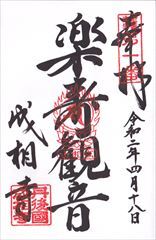 奉拝
令和二年四月十八日
楽寿観音
成相寺